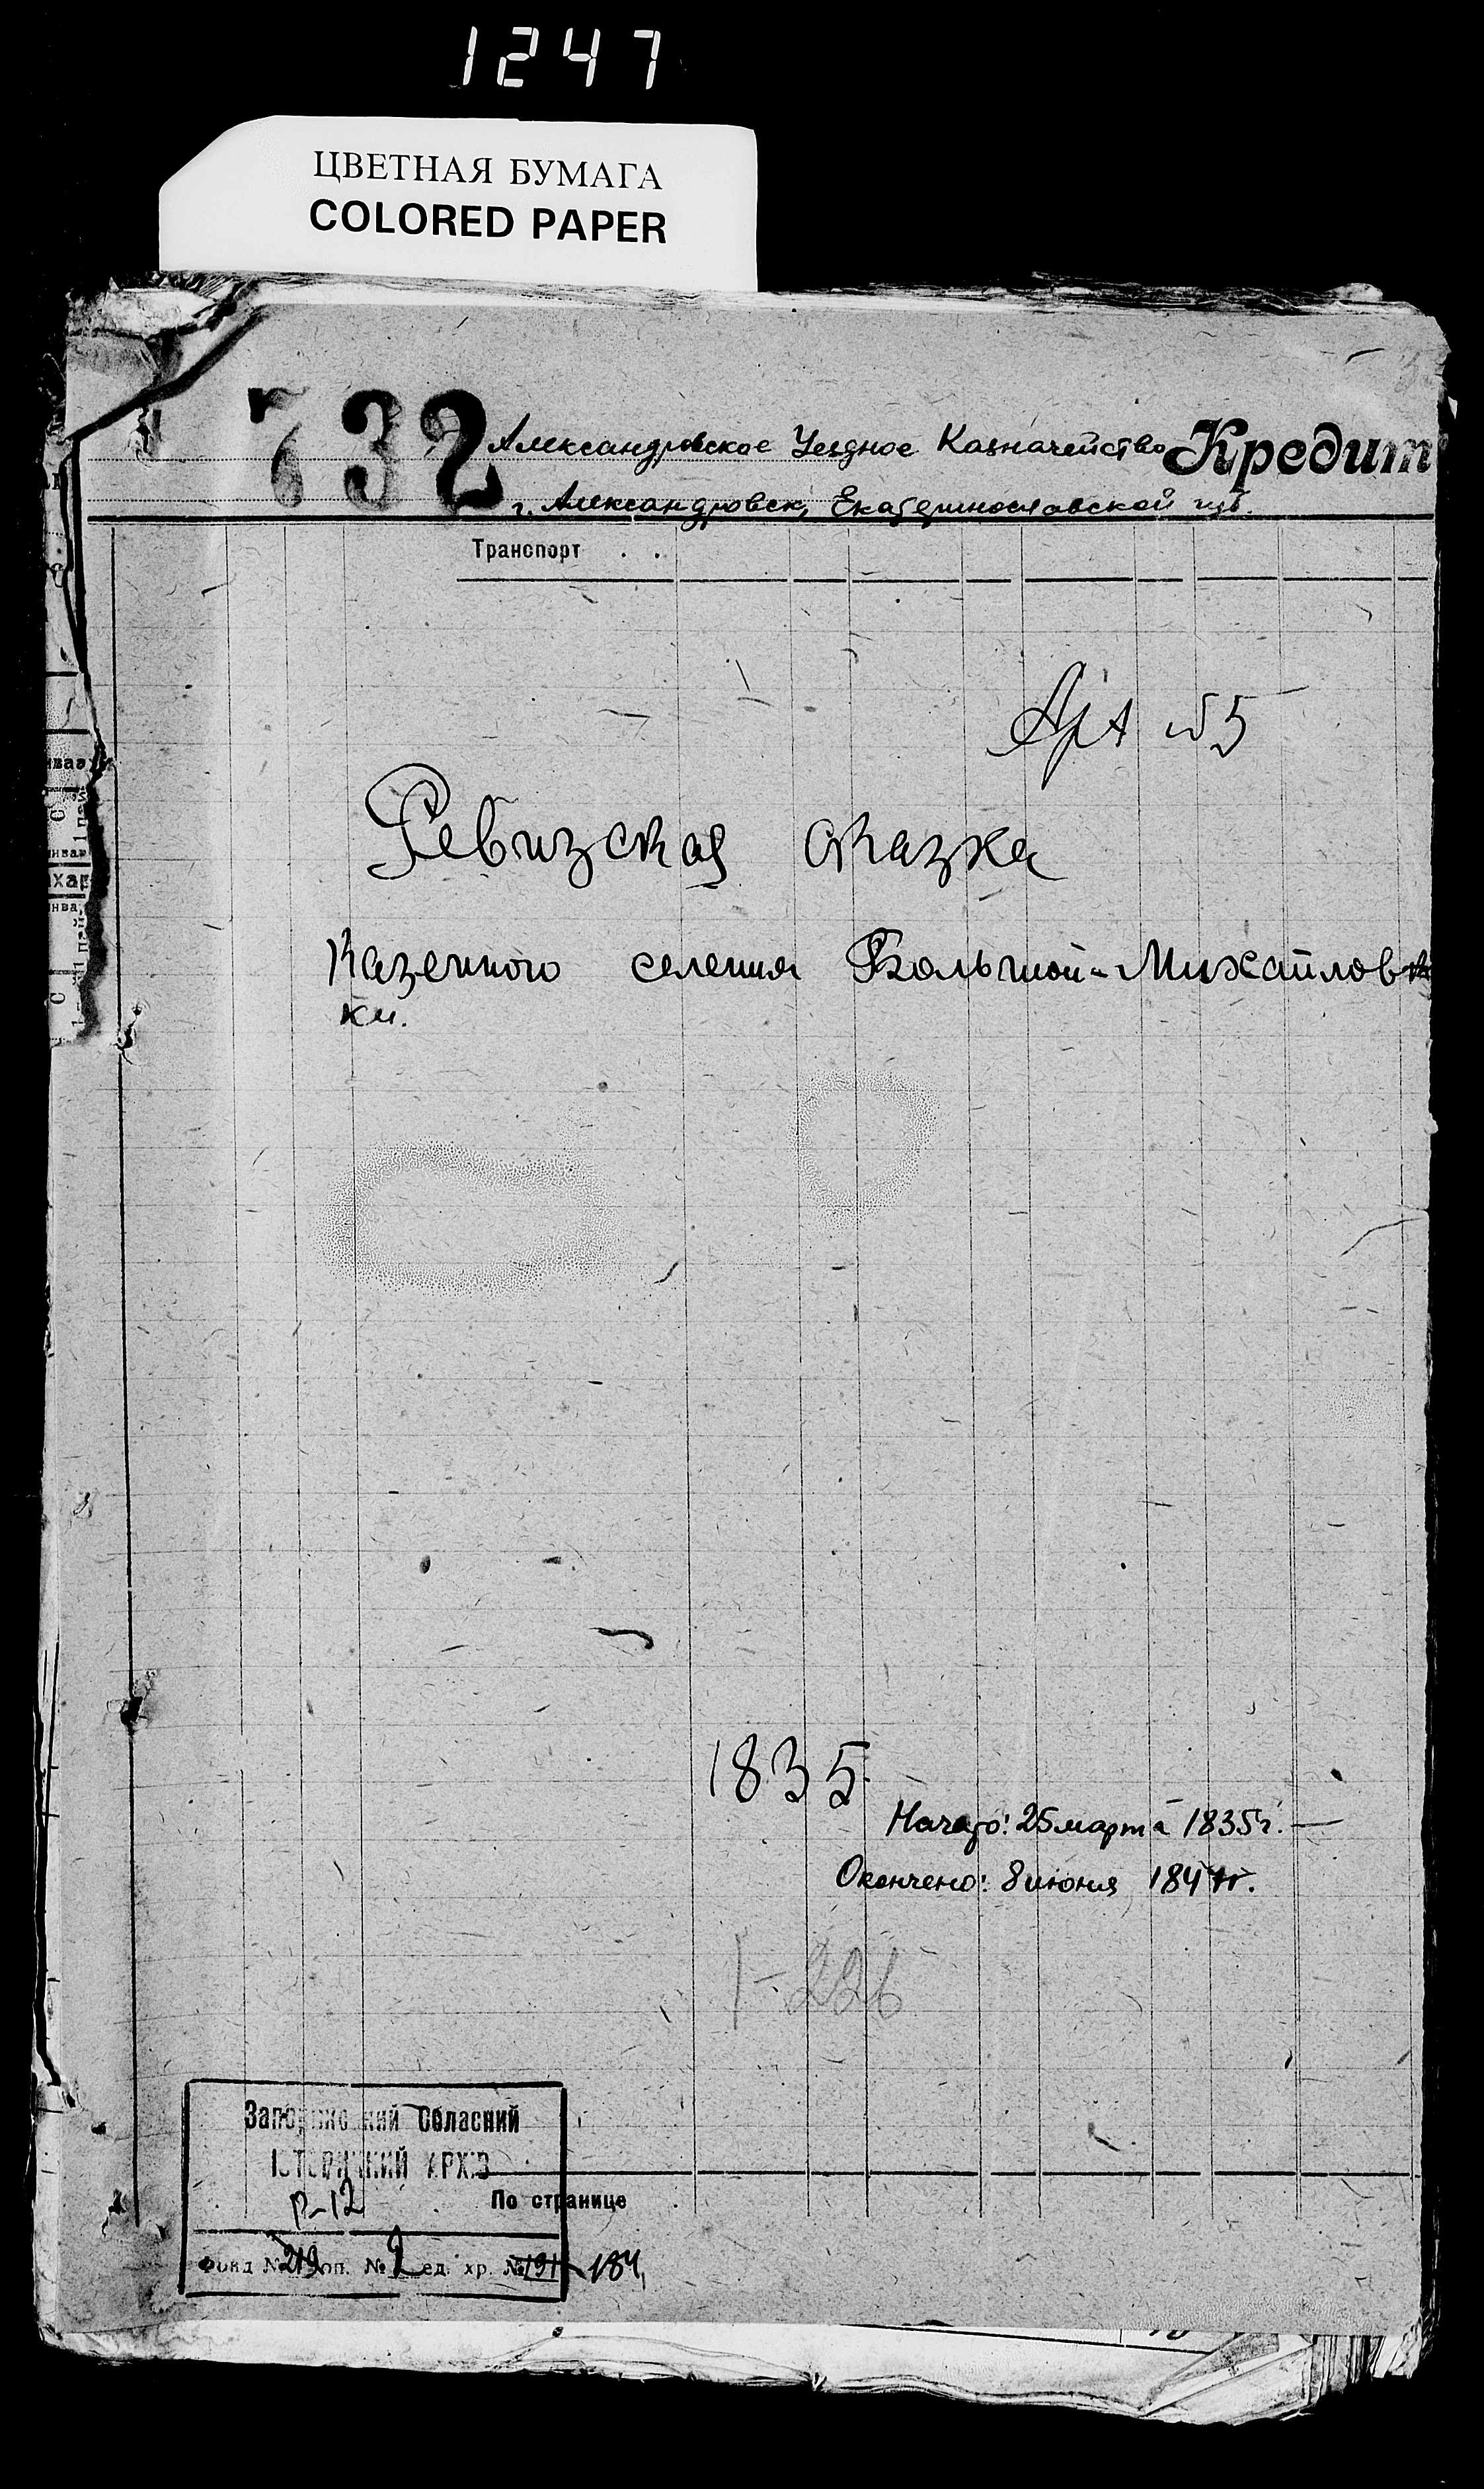 1247
ЦВЕТНАЯ БУМАГА
COLORED PAPER
732
Александровское Уездное Казначейство
Кредит
г. Александровск, Екатеринославской губ.
Транспорт . .
Арх №5
Ревизская сказка
Казенного селения Больной-Михайлов
ки.
1835
Начато: 25 марта 1835 г.
Окончено: 8 июня 184
1-226
Запорожский Обласний
Історичний Архів
Р-12
По странице
Фонд № 219 оп. № 2 ед. хр. № 191 184